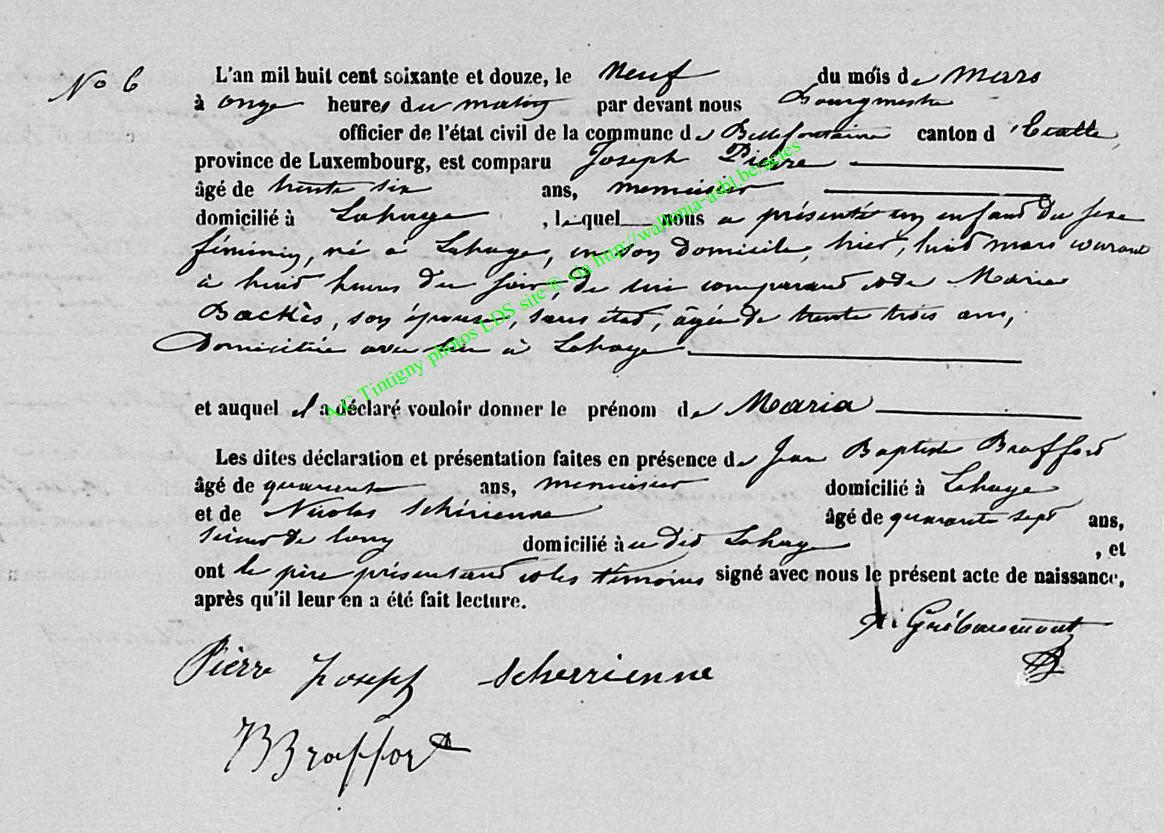 No 6
L'an mil huit cent soixante et douze, le neuf du mois de Mars
à onze heures du matin par devant nous Bourgmestre
officier de l'état civil de la commune de Bellefontaine canton d'Etalle,
province de Luxembourg, est comparu Joseph Pierre
âgé de trente six ans, menuisier
domicilié à Lahage, lequel nous a présenté un enfant du sexe
féminin, né à Lahage, en son domicile, hier, huit mars courant
à huit heures du soir, de lui comparant et de Maria
Backès, son épouse, sans état, âgée de trente trois ans,
Domiciliée avec lui à Lahage
et auquel il a déclaré vouloir donner le prénom de Maria
Les dites déclaration et présentation faites en présence de Jean Baptiste Braffort
âgé de quarante ans, menuisier domicilié à Lahage
et de Nicolas Schirienne âgé de quarante sept ans,
scieur de long domicilié à u dit Lahage, et
ont le père présentant et les témoins signé avec nous le présent acte de naissance,
après qu'il leur en a été fait lecture.
Pierre Joseph Scherrienne
JBBraffort
A.C Tintigny photos LDS site © via http://wallonia-asbl.be/actes